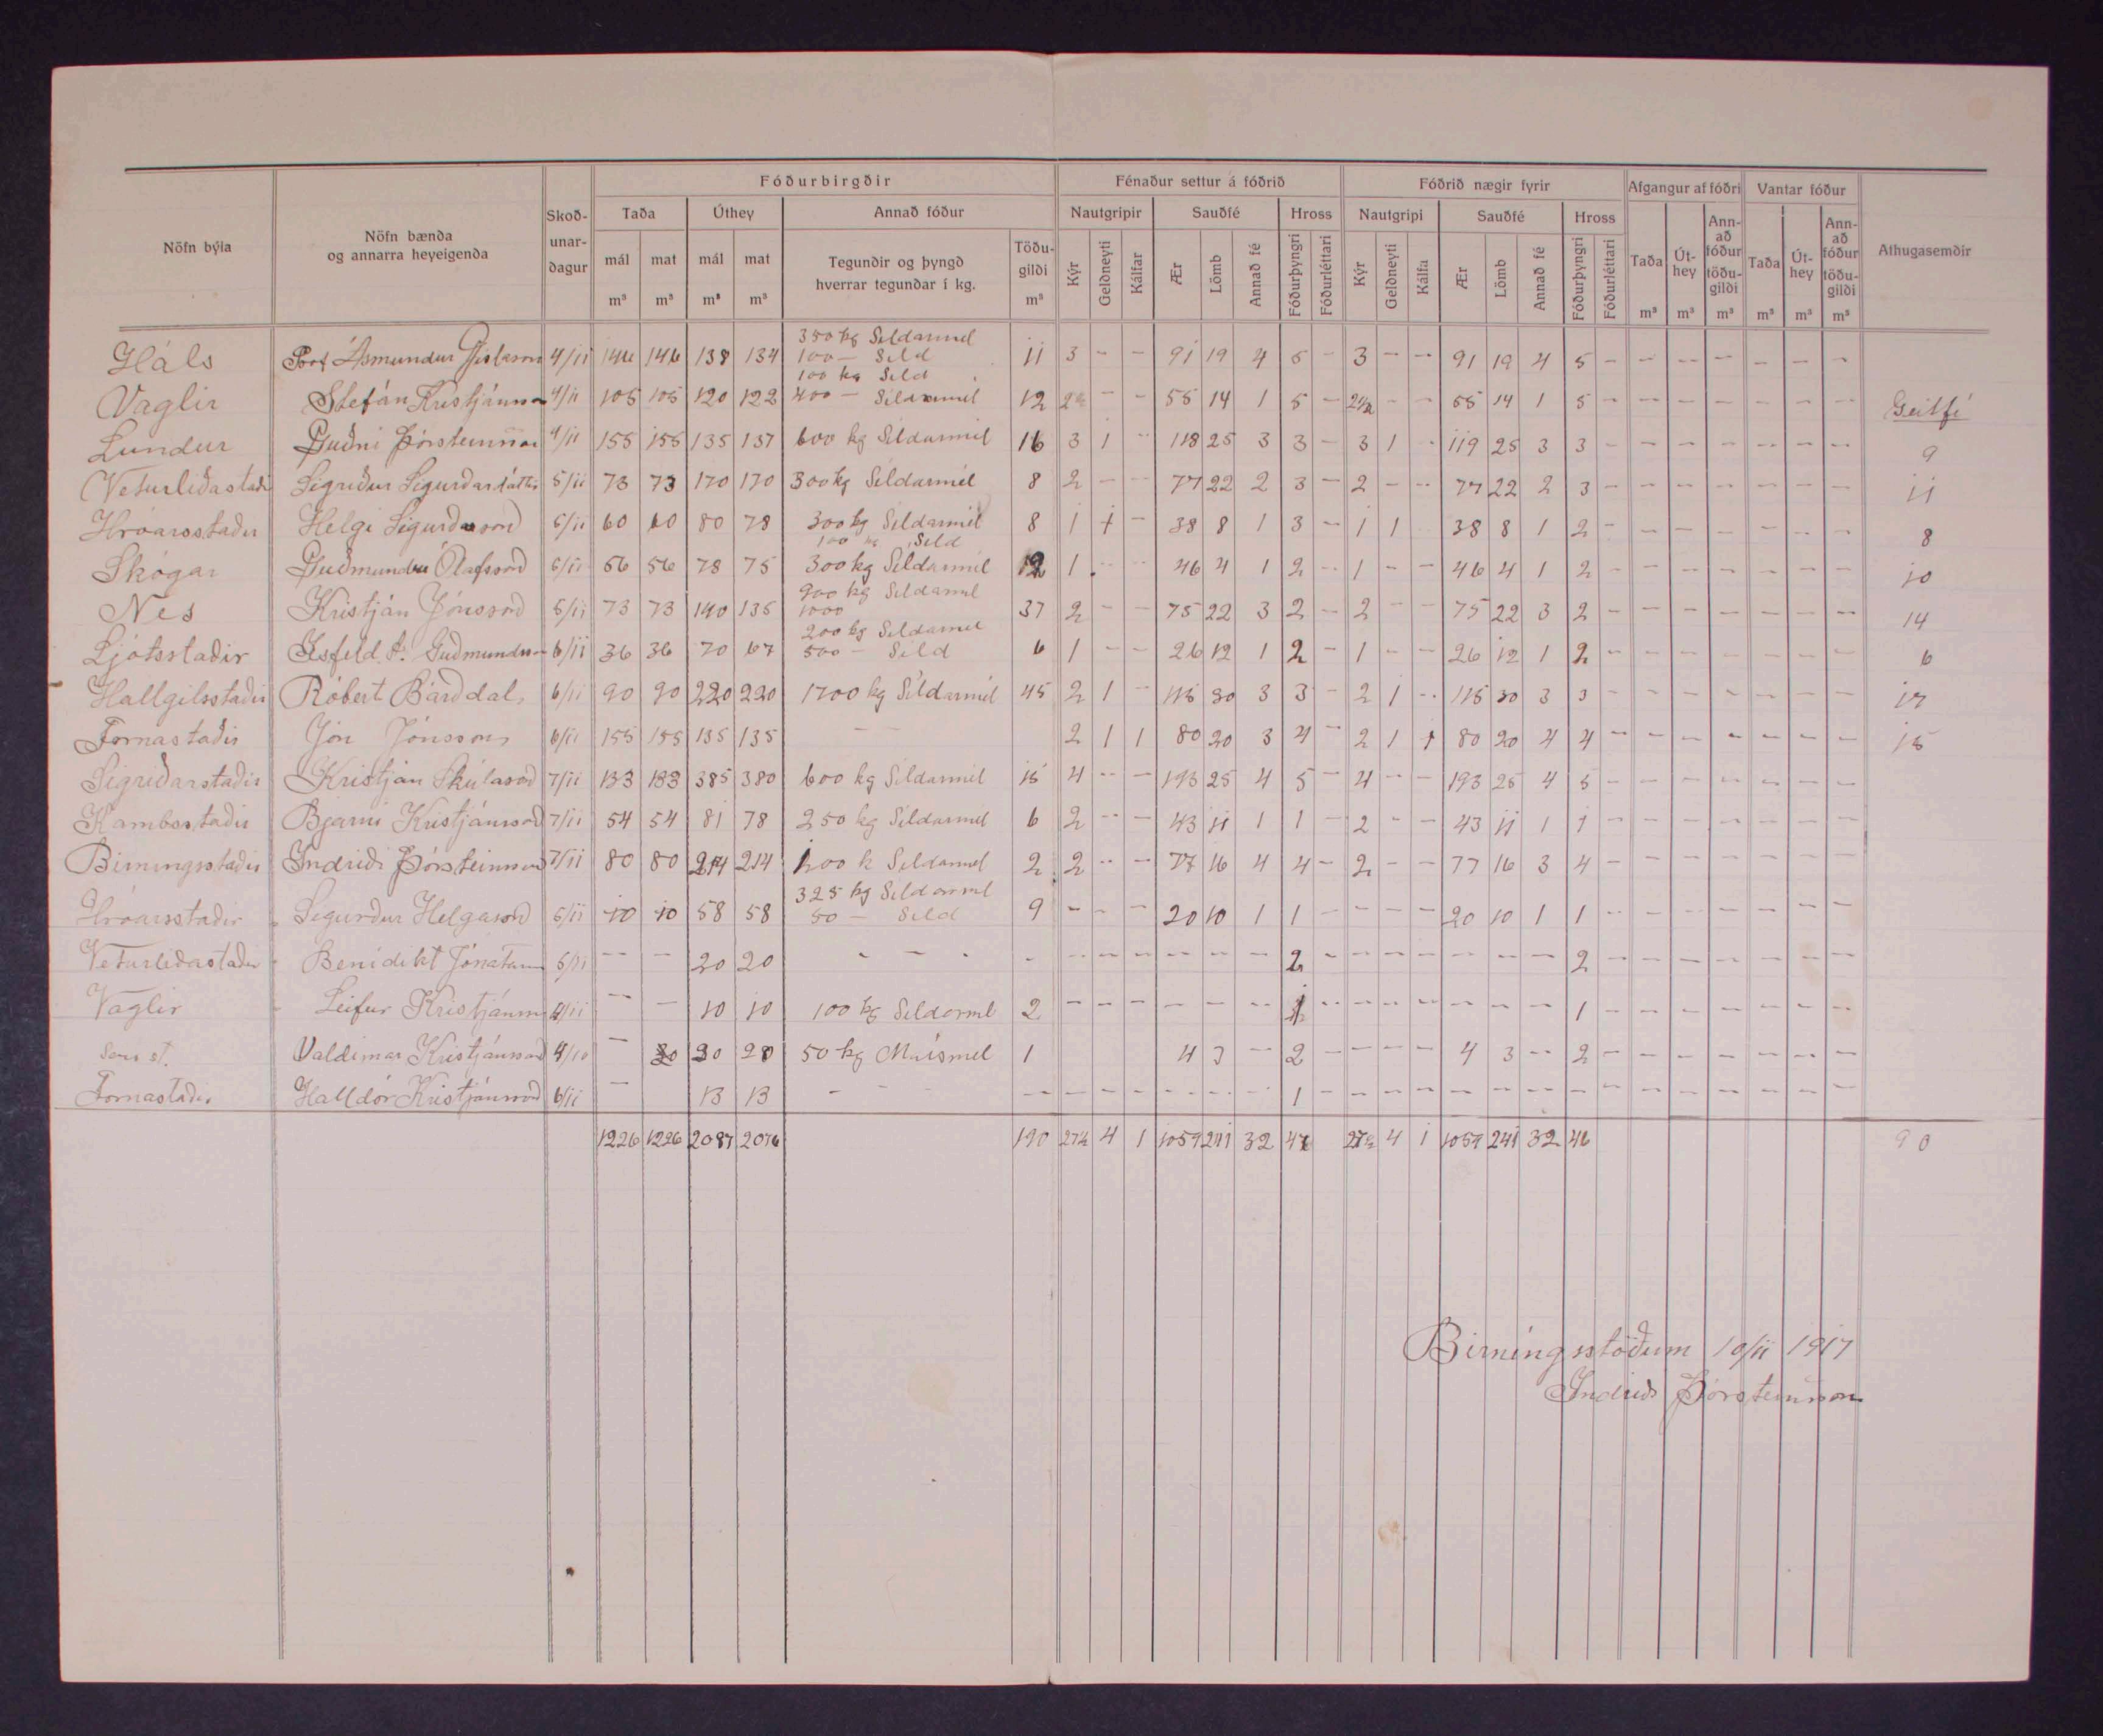 Fóðurbirgðir Fénaður settur á fóðrið Fóðrið nægir fyrir Afgangur af fóðri Vantar fóður
Nöfn býla Nöfn bænda og annarra heyeigenda Skoðunardagur Taða Úthey Annað fóður Nautgripir Sauðfé Hross Nautgripi Sauðfé Hross Taða Úthey Annað fóður töðugildi Taða Úthey Annað fóður töðugildi Athugasemdir
mál m³ mat m³ mál m³ mat m³ Tegundir og þyngd hverrar tegundar í kg. Töðugildi m³ Kýr Geldneyti Kálfar Ær Lömb Annað fé Fóðurþyngri Fóðurléttari Kýr Geldneyti Kálfa Ær Lömb Annað fé Fóðurþyngri Fóðurléttari m³ m³ m³ m³ m³ m³
350 kg Síldarmél
Háls Ásmundur Gíslason 4/11 146 146 138 134 100 — Síld 11 3 - - 91 19 4 5 - 3 - - 91 19 4 5 - - - - - - -
100 kg Síld
Vaglir Stefán Kristjánsson 4/11 105 105 120 122 400 — Síldarmél 12 2½ - - 55 14 1 5 - 2½ - - 55 14 1 5 - - - - - - - Geitfé
Lundur Guðni Þórsteinsson 4/11 155 155 135 137 600 kg Síldarmél 16 3 1 - 118 25 3 3 - 3 1 - 119 25 3 3 - - - - - - - 9
Veturliðastaðir Sigríður Sigurðardóttir 5/11 73 73 170 170 300 kg Síldarmél 8 2 - - 77 22 2 3 - 2 - - 77 22 2 3 - - - - - - - 11
Hróarsstaðir Helgi Sigurðsson 5/11 60 60 80 78 300 kg Síldarmél 8 1 1 - 38 8 1 3 - 1 1 38 8 1 2 - - - - - - - 8
100 kg Síld
Skógar Guðmundur Ólafsson 5/11 56 56 78 75 300 kg Síldarmél 12 1 - - 46 4 1 2 - 1 - - 46 4 1 2 - - - - - - - 10
900 kg Síldarmél
Nes Kristján Jónsson 5/11 73 73 140 135 1000 37 2 - - 75 22 3 2 - 2 - - 75 22 3 2 - - - - - - - 14
200 kg Síldarmél
Ljótsstaðir Ísfeld Á. Guðmundsson 6/11 36 36 70 67 500 — Síld 6 1 - - 26 12 1 2 - 1 - - 26 12 1 2 - - - - - - - 6
Hallgilsstaðir Róbert Bárðdal 6/11 90 90 220 220 1700 kg Síldarmél 45 2 1 - 115 30 3 3 - 2 1 - 115 30 3 3 - - - - - - - 17
Fornastaðir Jón Jónsson 6/11 155 155 135 135 - - 2 1 1 80 20 3 4 - 2 1 1 80 20 4 4 - - - - - - - 15
Sigríðarstaðir Kristján Skúlason 7/11 133 133 385 380 600 kg Síldarmél 15 4 - - 193 25 4 5 - 4 - - 193 25 4 5 - - - - - - -
Kambsstaðir Bjarni Kristjánsson 7/11 54 54 81 78 250 kg Síldarmél 6 2 - - 43 11 1 1 - 2 - - 43 11 1 1 - - - - - - -
Birningsstaðir Indriði Þórsteinsson 7/11 80 80 214 214 100 k Síldarmél 2 2 - - 77 16 4 4 - 2 - - 77 16 3 4 - - - - - - -
325 kg Síldarmél
Hróarsstaðir Sigurður Helgason 5/11 10 10 58 58 50 — Síld 9 - - - 20 10 1 1 - - - - 20 10 1 1 - - - - - - -
Veturliðastaðir Benidikt Jónatansson 5/11 - - 20 20 - - - - - - - - - - 2 - - - - - - - 2 - - - - - - -
Vaglir Leifur Kristjánsson 4/11 - - 10 10 100 kg Síldarmél 2 - - - - - - 1 - - - - - - - 1 - - - - - - -
Sama st. Valdimar Kristjánsson 4/10 - 30 28 50 kg Maísmél 1 4 3 - 2 - - - - 4 3 - 2 - - - - - - -
Fornastaðir Halldór Kristjánsson 6/11 - 13 13 - - - - - - - - - 1 - - - - - - - - - - - - - - -
1226 1226 2087 2076 190 27½ 4 1 1059 241 32 47 27½ 4 1 1059 241 32 46 90
Birningsstöðum 10/11 1917
Indriði Þórsteinsson